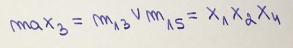 max₃ = m₁₃ ∨ m₁₅ = x₁x₂x₄